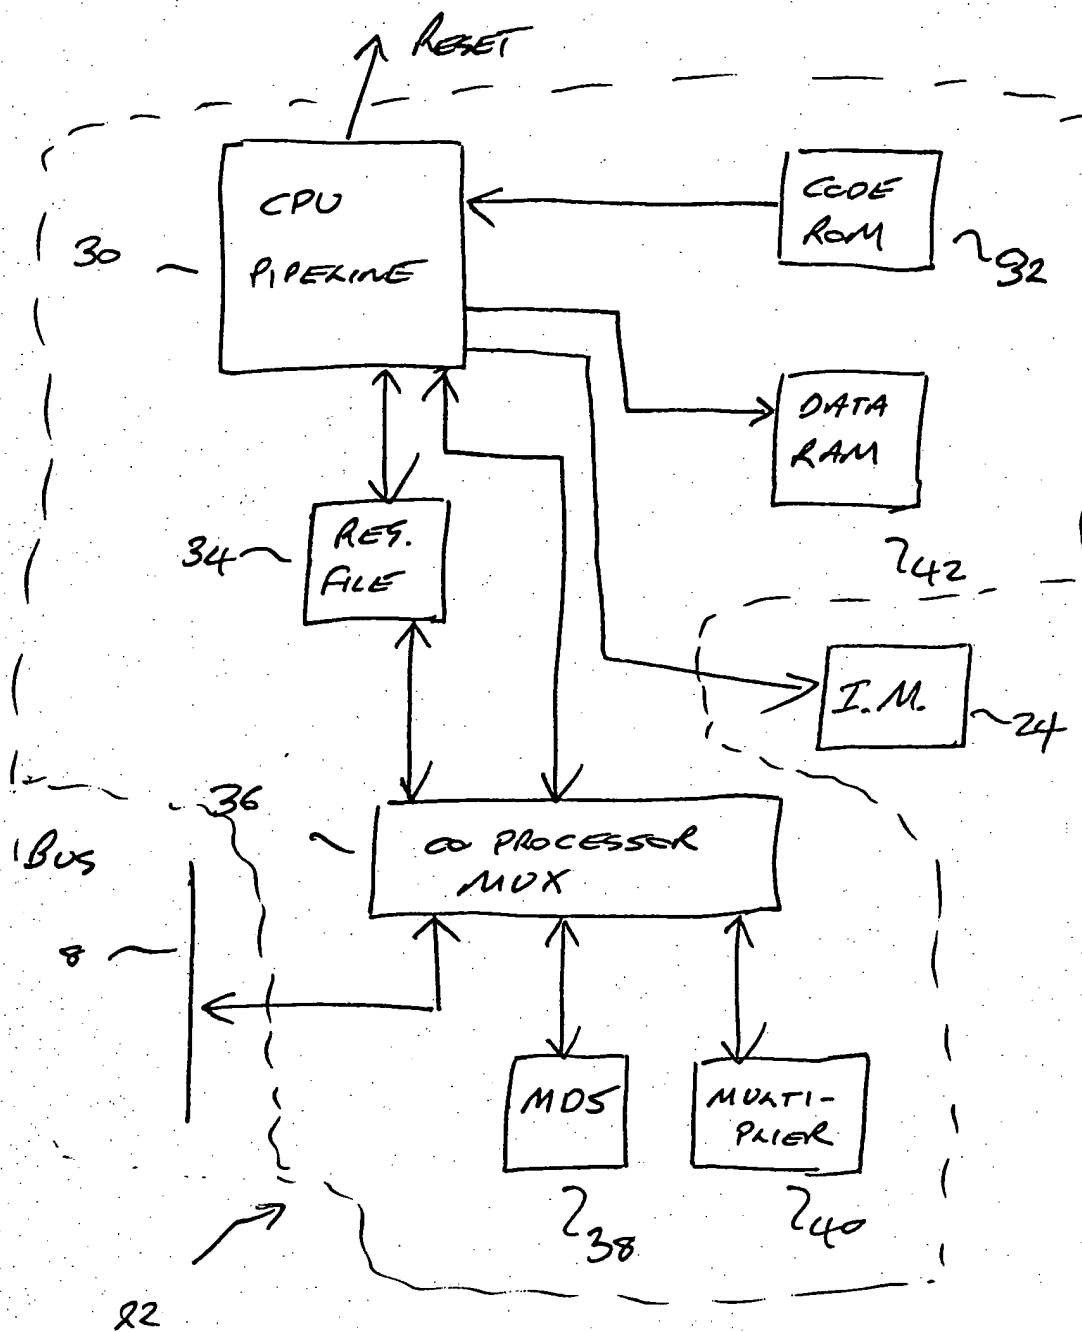 RESET
CPU
PIPELINE
30
CODE
ROM
32
DATA
RAM
42
REG.
FILE
34
I.M.
24
36
CO PROCESSER
MUX
BUS
8
MD5
38
MULTI-
PLIER
40
22